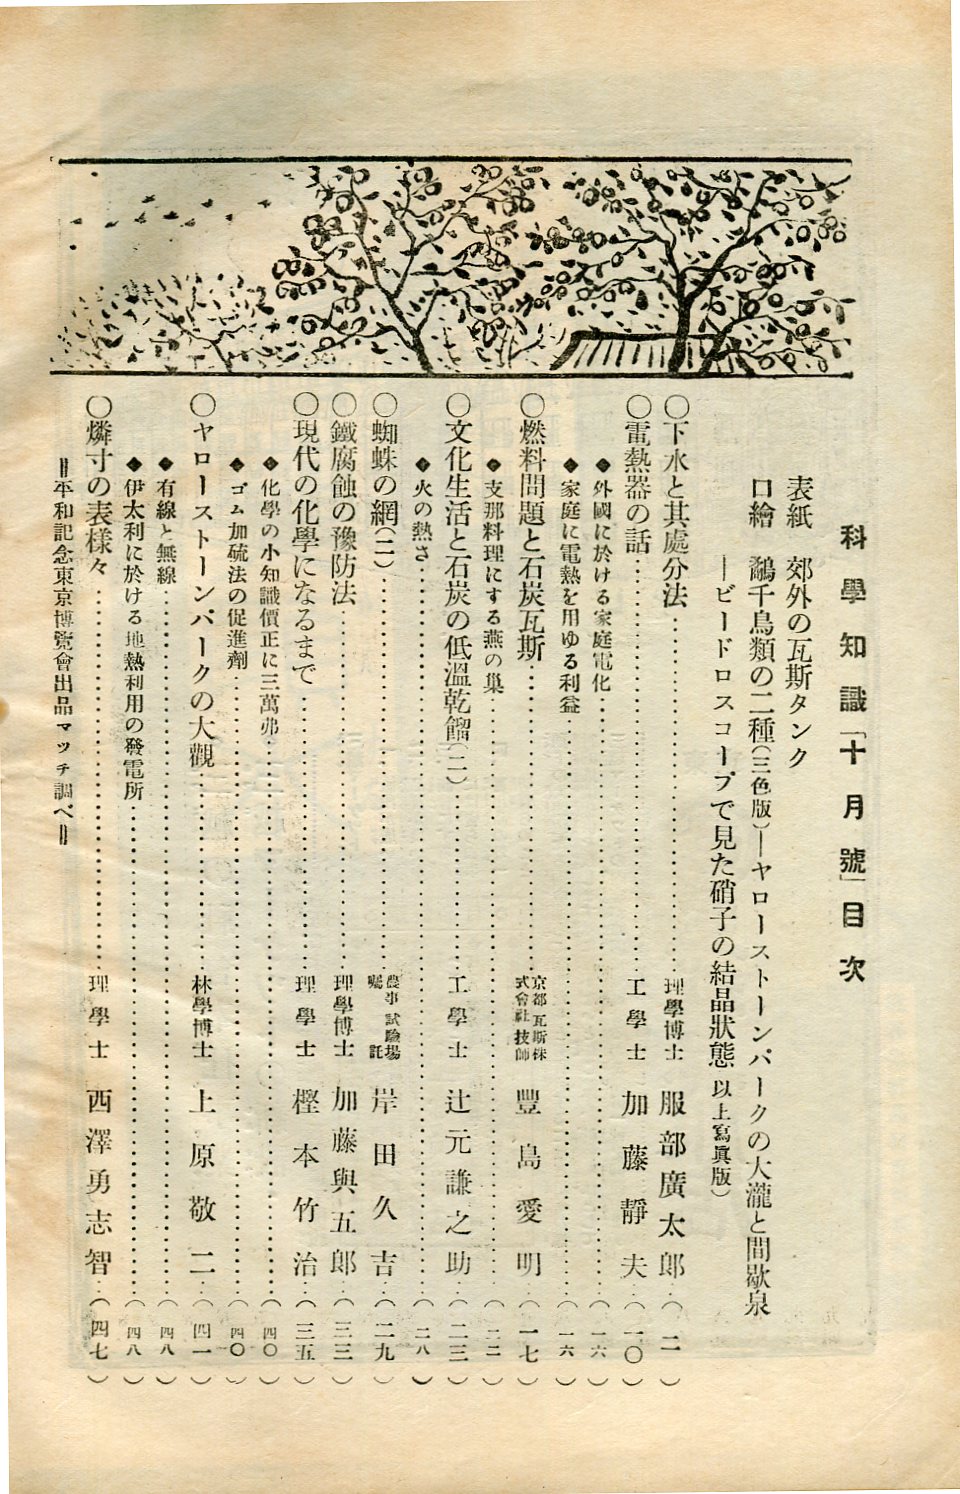 科學知識「十月號」目次
表紙　郊外の瓦斯タンク
口繪　鷸千鳥類の二種（三色版）―ヤローストーンパークの大瀧と間歇泉
―ビードロスコープで見た硝子の結晶狀態（以上寫眞版）
○下水と其處分法……理學博士　服部廣太郎…（二）
○電熱器の話……工學士　加藤靜夫…（一〇）
◆外國に於ける家庭電化……（一六）
◆家庭に電熱を用ゆる利益……（一六）
○燃料問題と石炭瓦斯……京都瓦斯株式會社技師　豐島愛明…（一七）
◆支那料理にする燕の巢……（二二）
○文化生活と石炭の低溫乾餾（二）……工學士　辻元謙之助…（二三）
◆火の熱さ……（二八）
○蜘蛛の網（二）……農事試驗場囑託　岸田久吉…（二九）
○鐵腐蝕の豫防法……理學博士　加藤與五郎…（三三）
○現代の化學になるまで……理學士　樫本竹治…（三五）
◆化學の小知識價正に三萬弗……（四〇）
◆ゴム加硫法の促進劑……（四〇）
○ヤローストーンパークの大觀……林學博士　上原敬二…（四一）
◆有線と無線……（四八）
◆伊太利に於ける地熱利用の發電所……（四八）
○燐寸の表樣々……理學士　西澤勇志智…（四七）
＝平和記念東京博覽會出品マッチ調べ＝